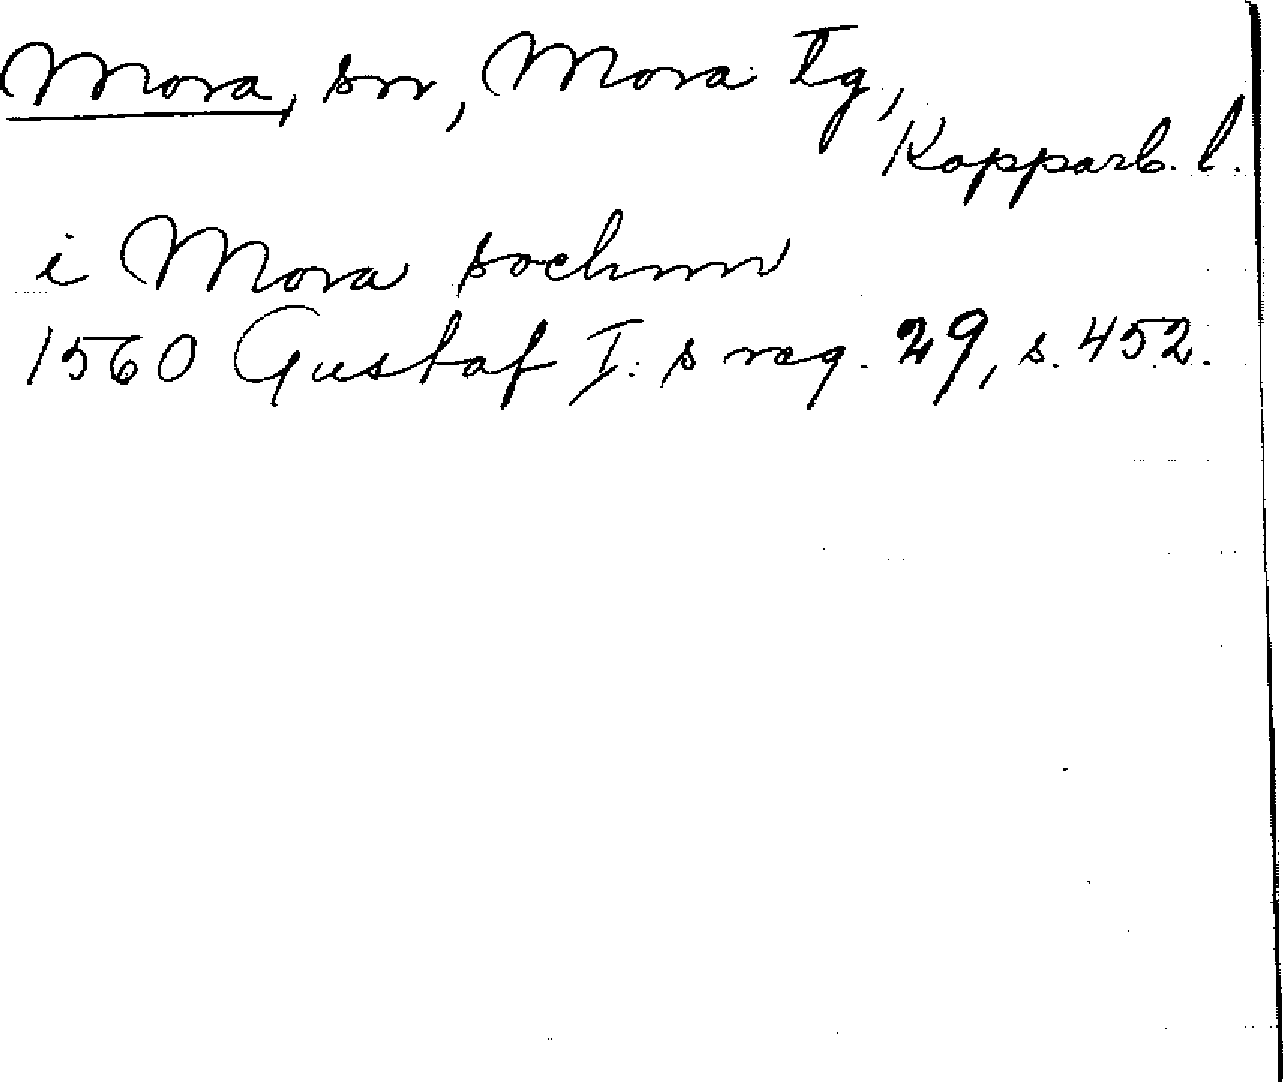 Mora, sn, Mora Tg,
Kopparb. l.
i Mora sochnn
1560 Gustaf I:s reg. 29, s. 452.